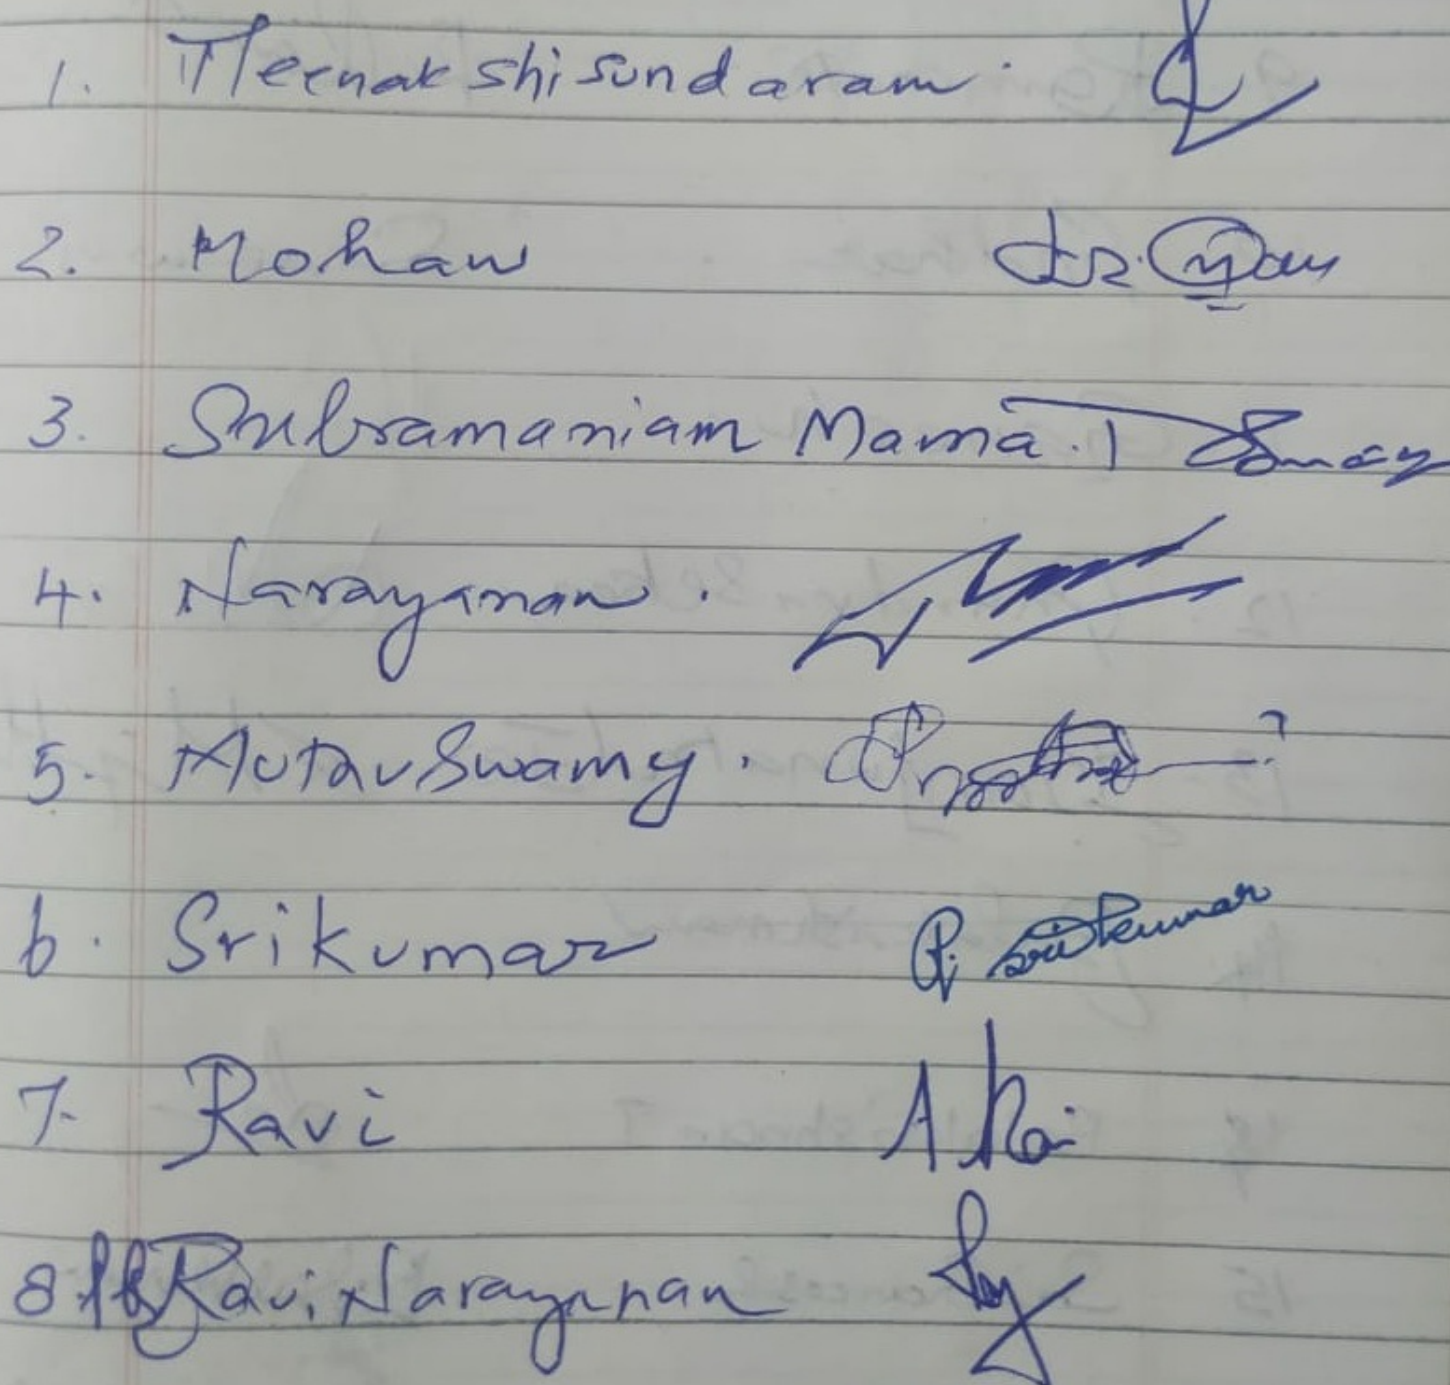 1. Meenakshi Sundaram.
2. Mohan
3. Subramaniam Mama.
4. Narayanan.
5. MuthuSwamy.
6. Srikumar P. Srikumar
7. Ravi A Ravi
8. Ravi Narayanan